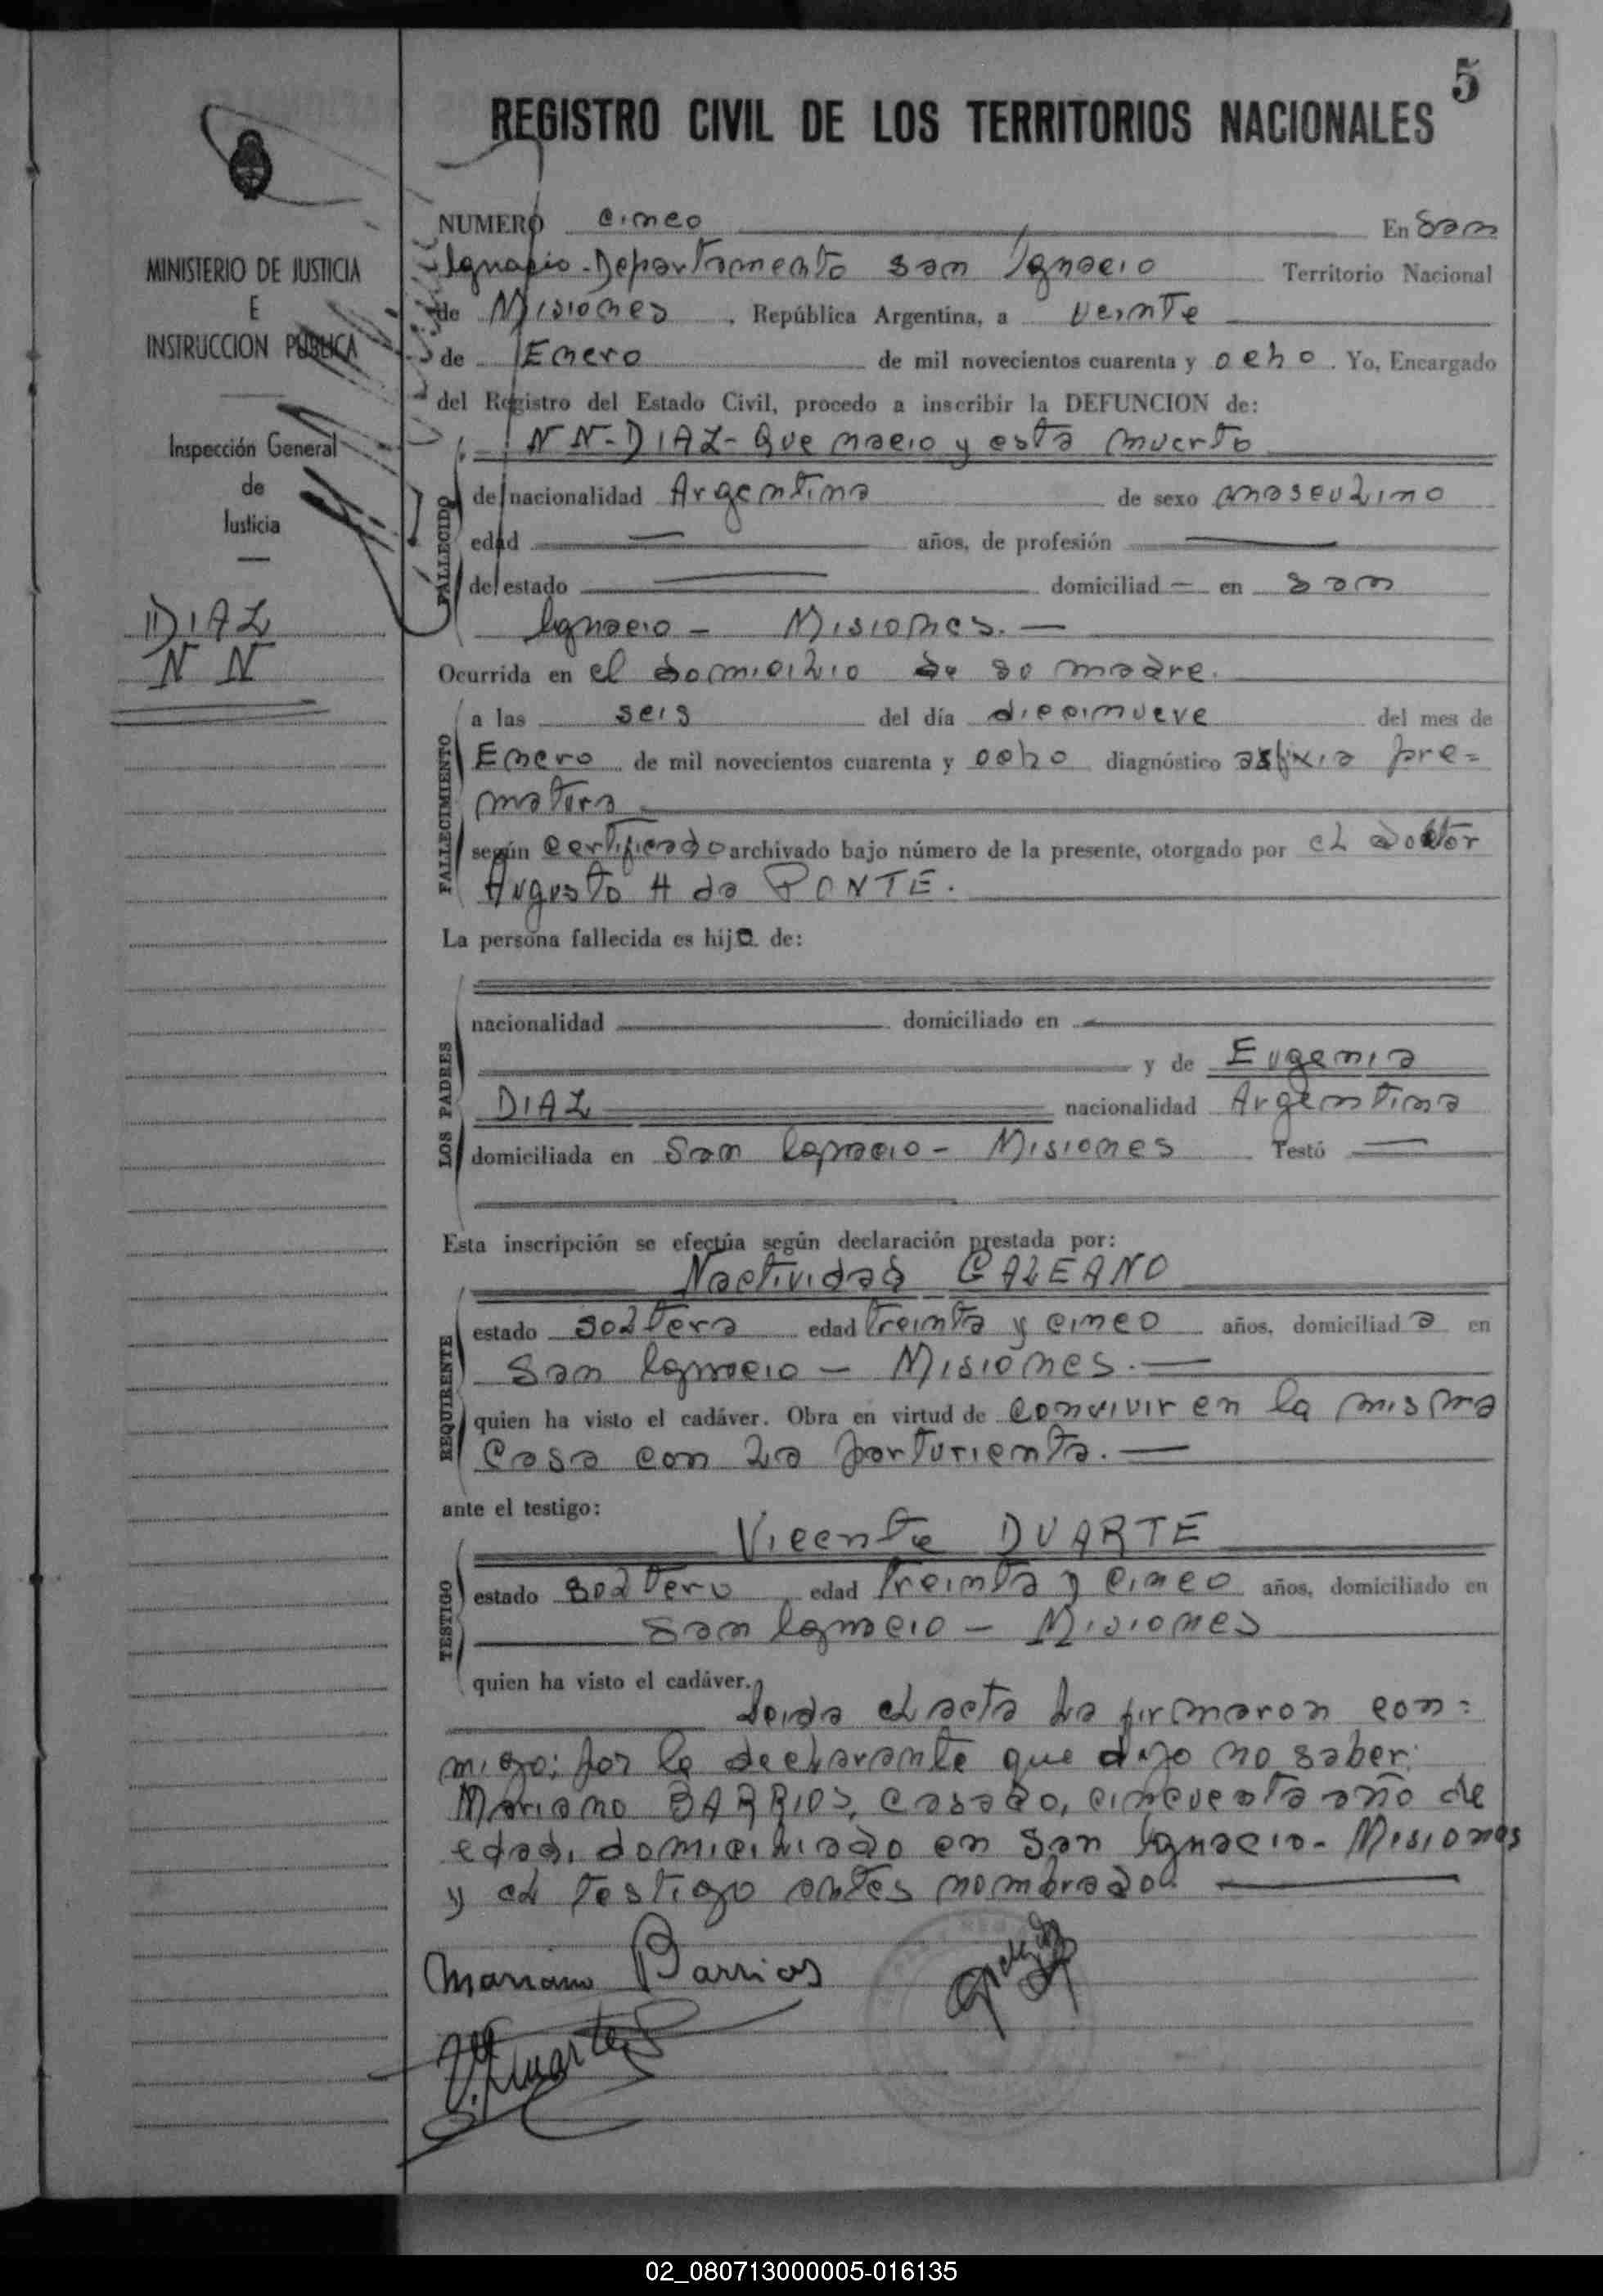 5
REGISTRO CIVIL DE LOS TERRITORIOS NACIONALES
MINISTERIO DE JUSTICIA
E
INSTRUCCION PUBLICA
Inspección General
de
Justicia
DIAZ
N N
NUMERO cinco En San
Ignacio - Departamento San Ignacio Territorio Nacional
de Misiones, República Argentina, a veinte
de Enero de mil novecientos cuarenta y ocho. Yo, Encargado
del Registro del Estado Civil, procedo a inscribir la DEFUNCION de:
NN - DIAZ - Que nacio y esta muerto
FALLECIDO
de nacionalidad Argentina de sexo masculino
edad — años, de profesión —
de estado — domiciliad — en San
Ignacio - Misiones. —
Ocurrida en el domicilio de su madre.
FALLECIMIENTO
a las seis del día diecinueve del mes de
Enero de mil novecientos cuarenta y ocho diagnóstico asfixia pre=
matura
según certificado archivado bajo número de la presente, otorgado por el doctor
Augusto H da PONTE.
La persona fallecida es hijo de:
LOS PADRES
nacionalidad domiciliado en
y de Eugenia
DIAZ nacionalidad Argentina
domiciliada en San Ignacio - Misiones Testó —
Esta inscripción se efectúa según declaración prestada por:
Nactividad GALEANO
REQUIRENTE
estado soltera edad treinta y cinco años, domiciliada en
San Ignacio - Misiones. —
quien ha visto el cadáver. Obra en virtud de convivir en la misma
casa con la parturienta. —
ante el testigo:
Vicente DUARTE
TESTIGO
estado soltero edad treinta y cinco años, domiciliado en
San Ignacio - Misiones
quien ha visto el cadáver.
Leida el acta la firmaron con=
migo; por la declarante que dijo no saber:
Mariano BARRIOS, casado, cincuenta año de
edad, domiciliado en San Ignacio - Misiones
y el testigo antes nombrado. —
Mariano Barrios
V. Duarte
02_080713000005-016135